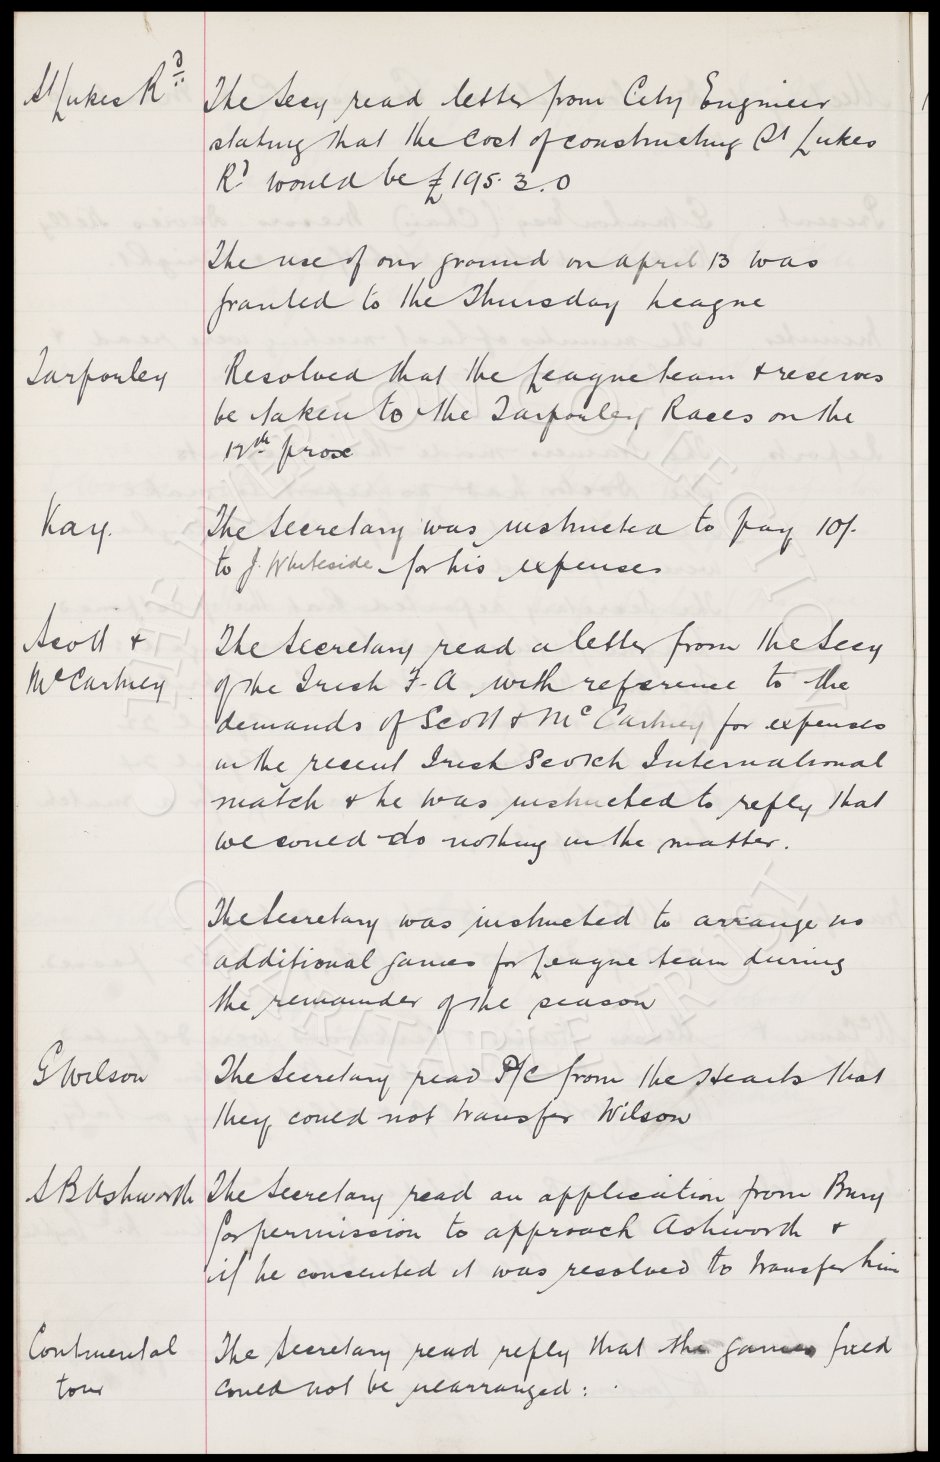 St Lukes Rd.
The Secy read letter from City Engineer
stating that the cost of constructing St Lukes
Rd would be £195. 3. 0
The use of our ground on april 13 was
granted to the Thursday League
Tarporley
Resolved that the League team + reserves
be taken to the Tarporley Races on the
12th prox
Kay.
The Secretary was instructed to pay 10/-
to J. Whiteside for his expenses
Scott +
McCartney
The Secretary read a letter from the Secy
of the Irish F.A with reference to the
demands of Scott + McCartney for expenses
in the recent Irish Scotch International
match + he was instructed to reply that
we could do nothing in the matter.
The Secretary was instructed to arrange no
additional games for League team during
the remainder of the season
G Wilson
The Secretary read P/C from the Hearts that
they could not transfer Wilson
S B Ashworth
The Secretary read an application from Bury
for permission to approach Ashworth +
if he consented it was resolved to transfer him
Continental
tour
The Secretary read reply that the games fixed
could not be rearranged: